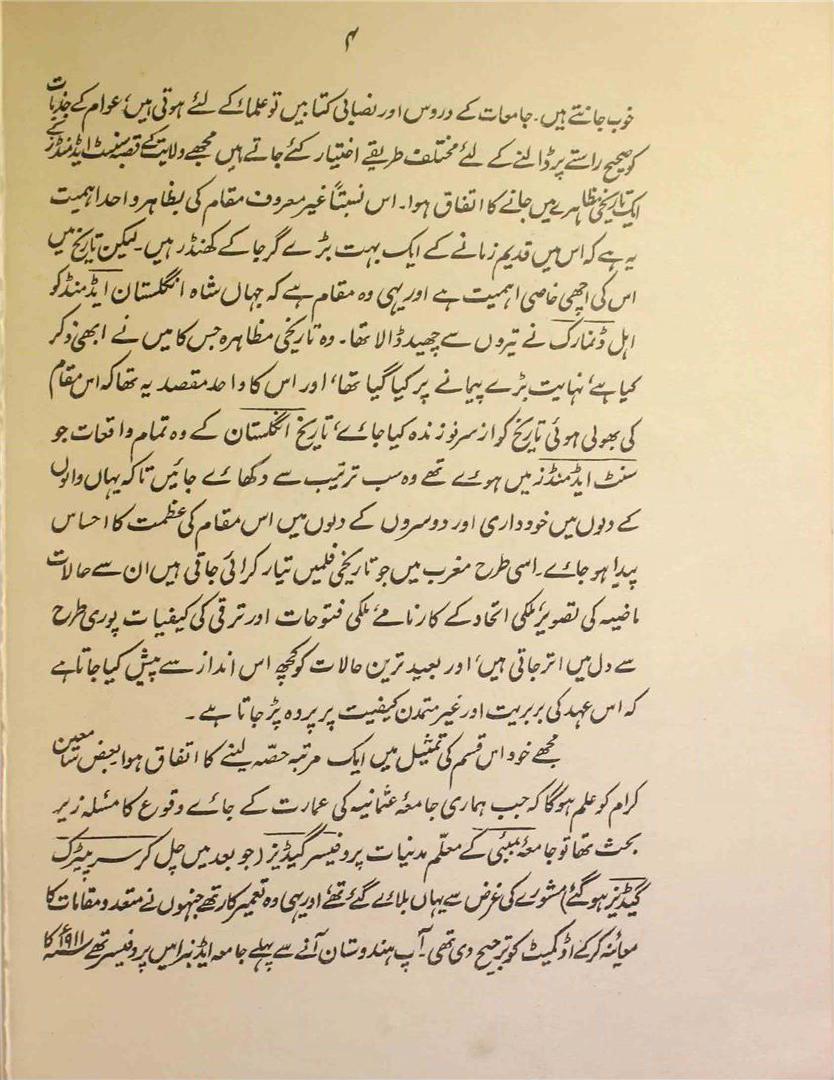 ۴
خوب جانتے ہیں۔ جامعات کے دروس اور نصابی کتابیں تو علماء کے لئے ہوتی ہیں، عوام کے جذبات
کو صحیح راستے پر ڈالنے کے لئے مختلف طریقے اختیار کئے جاتے ہیں مجھے ولایت کے قصبہ سنٹ ایڈمنڈز کے
ایک تاریخی مظاہرے میں جانے کا اتفاق ہوا۔ اس نسبتاً غیر معروف مقام کی بظاہر واحد اہمیت
یہ ہے کہ اس میں قدیم زمانے کے ایک بہت بڑے گرجا کے کھنڈر ہیں۔ لیکن تاریخ میں
اس کی اچھی خاصی اہمیت ہے اور یہی وہ مقام ہے کہ جہاں شاہ انگلستان ایڈمنڈ کو
اہل ڈنمارک نے تیروں سے چھید ڈالا تھا۔ وہ تاریخی مظاہرہ جس کا میں نے ابھی ذکر
کیا ہے، نہایت بڑے پیمانے پر کیا گیا تھا، اور اس کا واحد مقصد یہ تھا کہ اس مقام
کی بھولی ہوئی تاریخ کو از سر نو زندہ کیا جائے، تاریخ انگلستان کے وہ تمام واقعات جو
سنٹ ایڈمنڈز میں ہوئے تھے وہ سب ترتیب سے دکھائے جائیں تاکہ یہاں والوں
کے دلوں میں خودداری اور دوسروں کے دلوں میں اس مقام کی عظمت کا احساس
پیدا ہو جائے۔ اسی طرح مغرب میں جو تاریخی فلمیں تیار کرائی جاتی ہیں ان سے حالات
ماضیہ کی تصویر، ملکی اتحاد کے کارنامے، ملکی فتوحات اور ترقی کی کیفیات پوری طرح
سے دل میں اتر جاتی ہیں، اور بعید ترین حالات کو کچھ اس انداز سے پیش کیا جاتا ہے
کہ اس عہد کی بربریت اور غیر متمدن کیفیت پر پردہ پڑ جاتا ہے۔
مجھے خود اس قسم کی تمثیل میں ایک مرتبہ حصّہ لینے کا اتفاق ہوا بعض سامعین
کرام کو علم ہوگا کہ جب ہماری جامعۂ عثمانیہ کی عمارت کے جائے وقوع کا مسئلہ زیر
بحث تھا تو جامعۂ بمبئی کے معلّم مدنیات پروفیسر گیڈیز (جو بعد میں چل کر سر پیٹرک
گیڈیز ہو گئے) مشورے کی غرض سے یہاں بلائے گئے تھے، اور یہی وہ تعمیر کار تھے جنہوں نے متعدد مقامات کا
معائنہ کر کے اڈکمیٹ کو ترجیح دی تھی۔ آپ ہندوستان آنے سے پہلے جامعہ ایڈنبرا میں پروفیسر تھے ۱۹۱۱ء کا